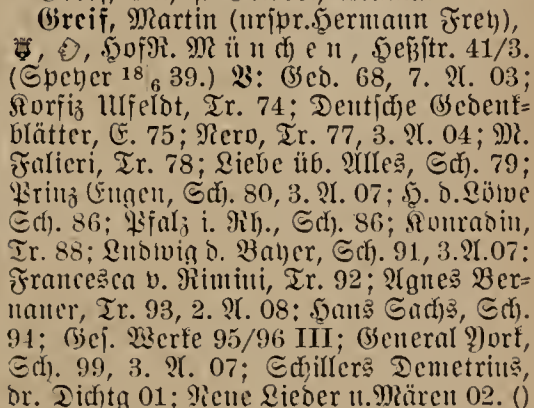 Greif, Martin (urspr. Hermann Frey),
HofR. München, Heßstr. 41/3.
(Speyer 18/6 39.) V: Ged. 68, 7. A. 03;
Korfiz Ulfeldt, Tr. 74; Deutsche Gedenk=
blätter, E. 75; Nero, Tr. 77, 3. A. 04; M.
Falieri, Tr. 78; Liebe üb. Alles, Sch. 79;
Prinz Eugen, Sch. 80, 3. A. 07; H. d. Löwe
Sch. 86; Pfalz i. Rh., Sch. 86; Konradin,
Tr. 88; Ludwig d. Bayer, Sch. 91, 3. A. 07;
Francesca v. Rimini, Tr. 92; Agnes Ber=
nauer, Tr. 93, 2. A. 08; Hans Sachs, Sch.
94; Ges. Werke 95/96 III; General York,
Sch. 99, 3. A. 07; Schillers Demetrius,
dr. Dichtg 01; Neue Lieder u. Mären 02. ()